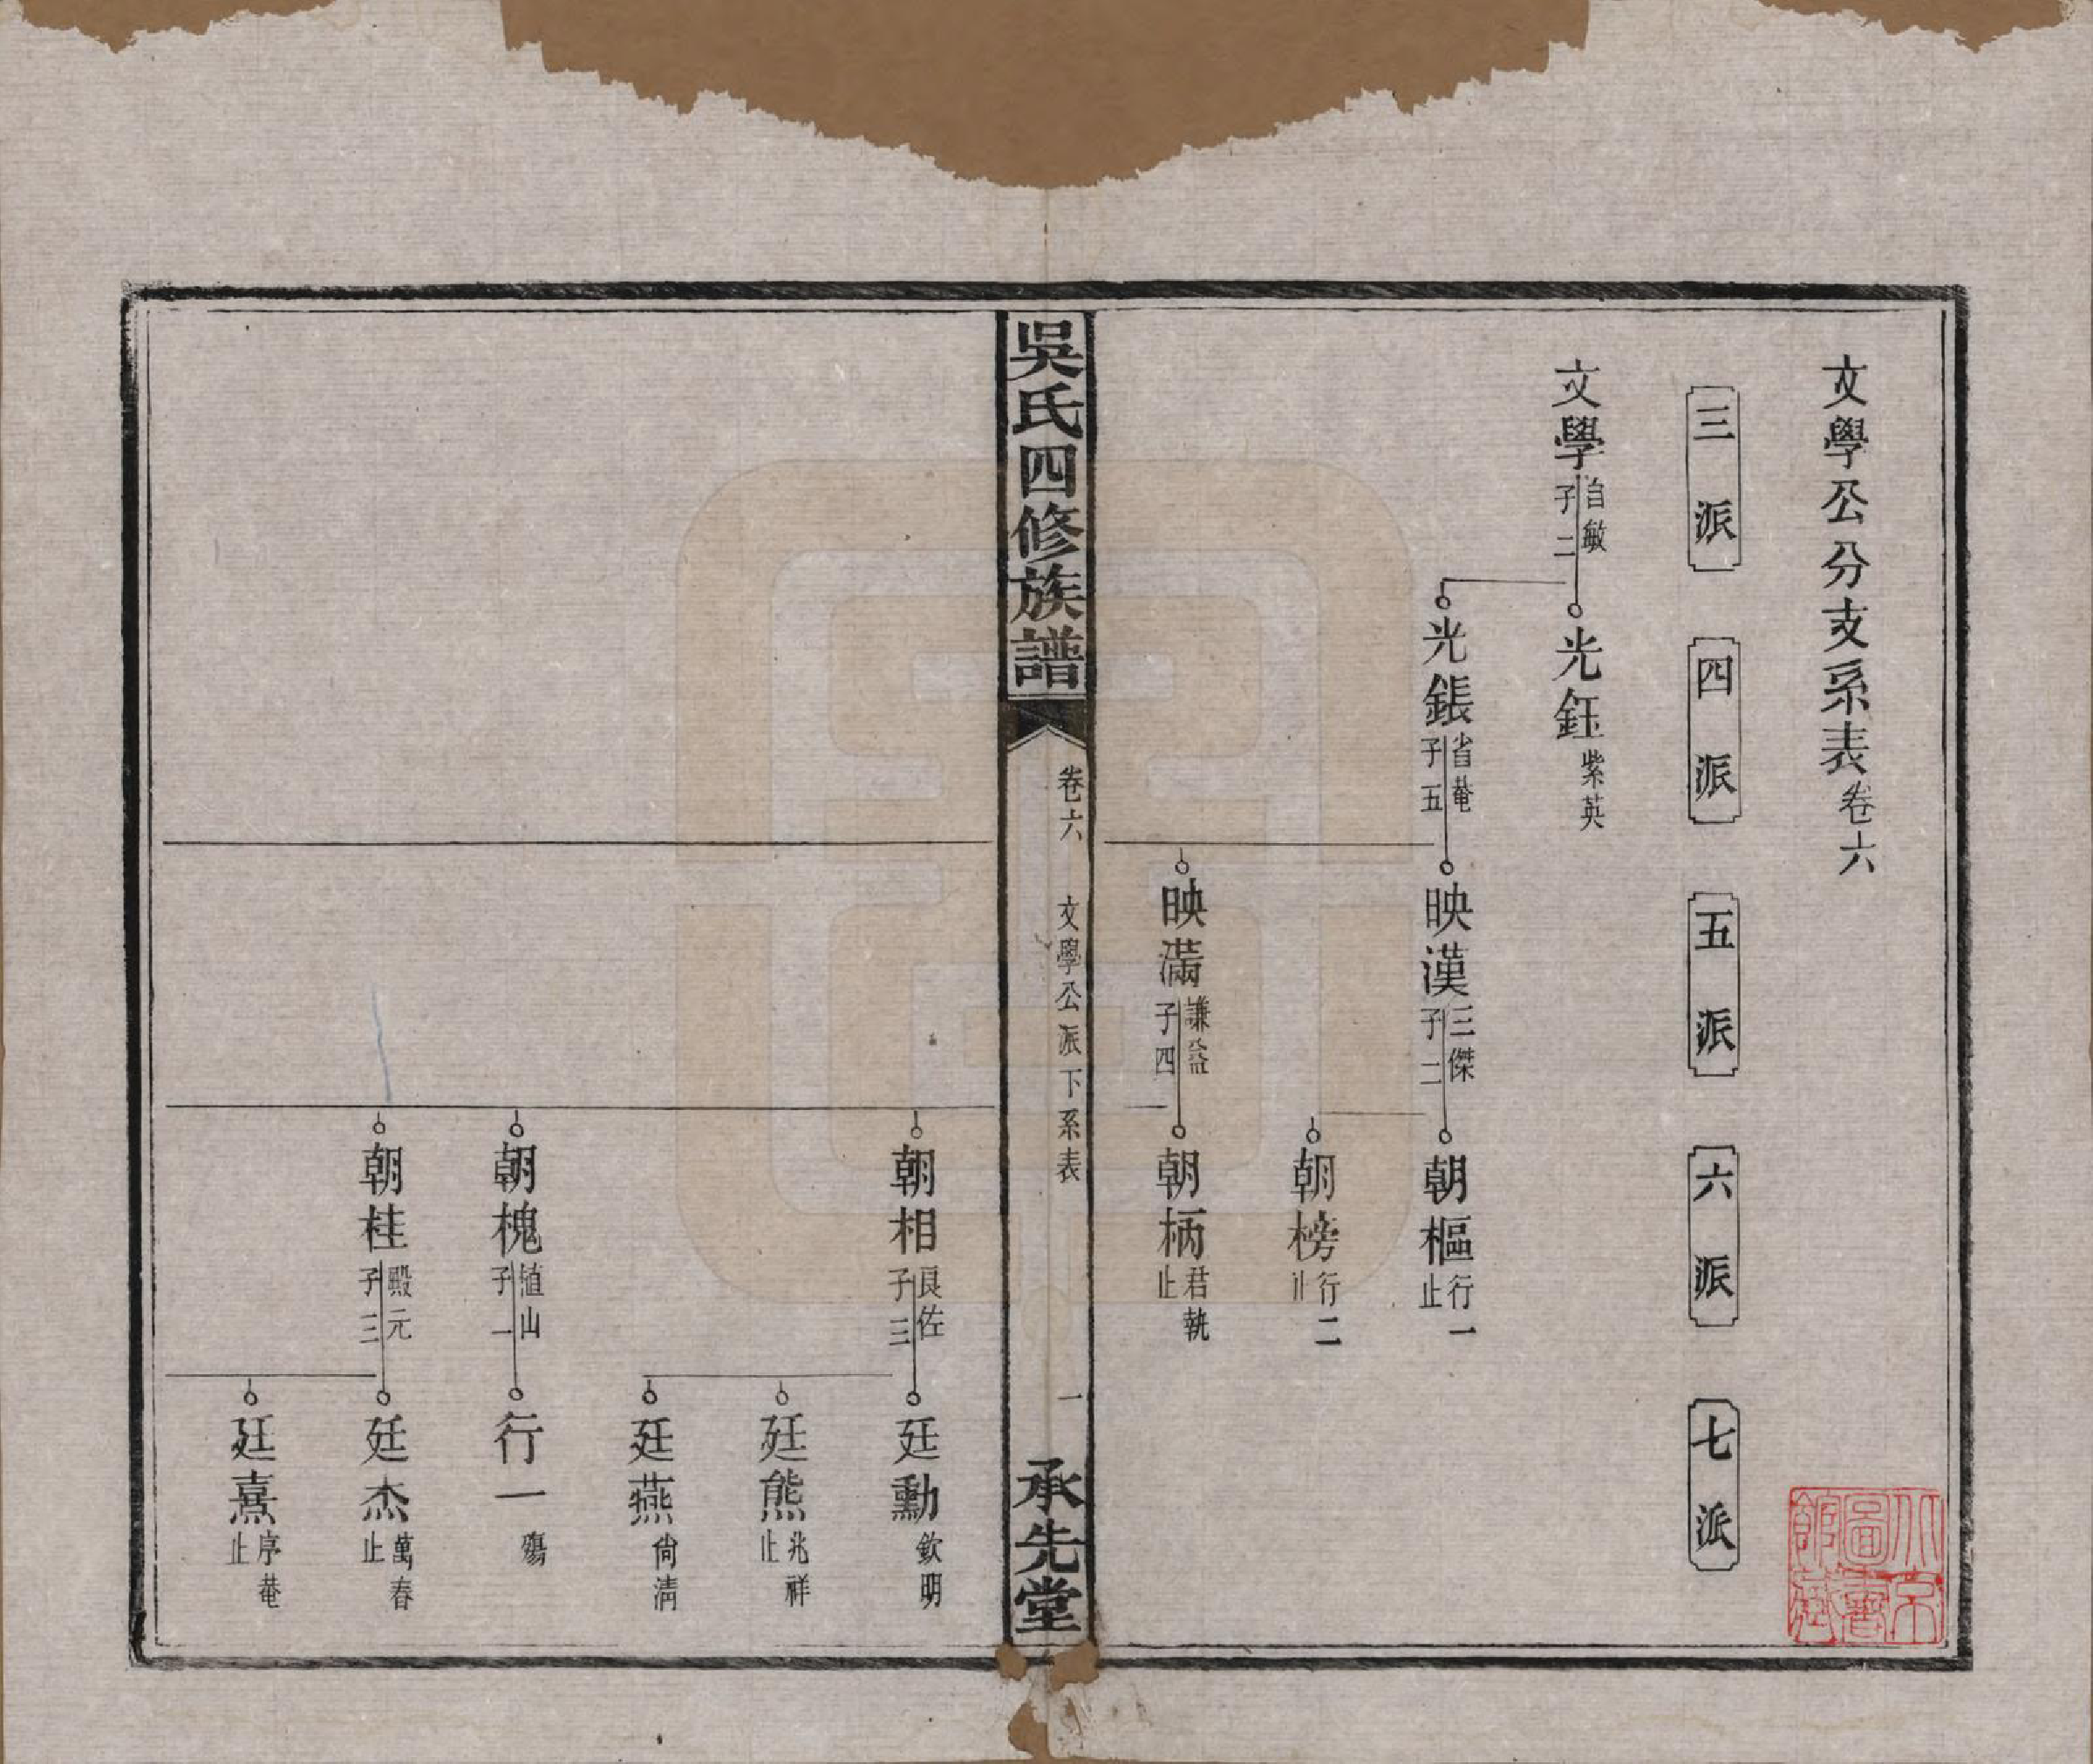 文學公分支系表卷六
三派
四派
五派
六派
七派
文學
自敏
子二
光鈺
紫英
光鋹
省菴
子五
映漢
三傑
子二
朝樞
行一
止
朝榜
行二
止
映滿
謙益
子四
朝柄
君執
止
吳氏四修族譜
卷六
文學公派下系表
一
承先堂
朝相
良佐
子三
廷勳
欽明
廷熊
兆祥
止
廷燕
尙淸
朝槐
植山
子一
行一
殤
朝桂
殿元
子三
廷杰
萬春
止
廷熹
序菴
止
北京圖書館藏